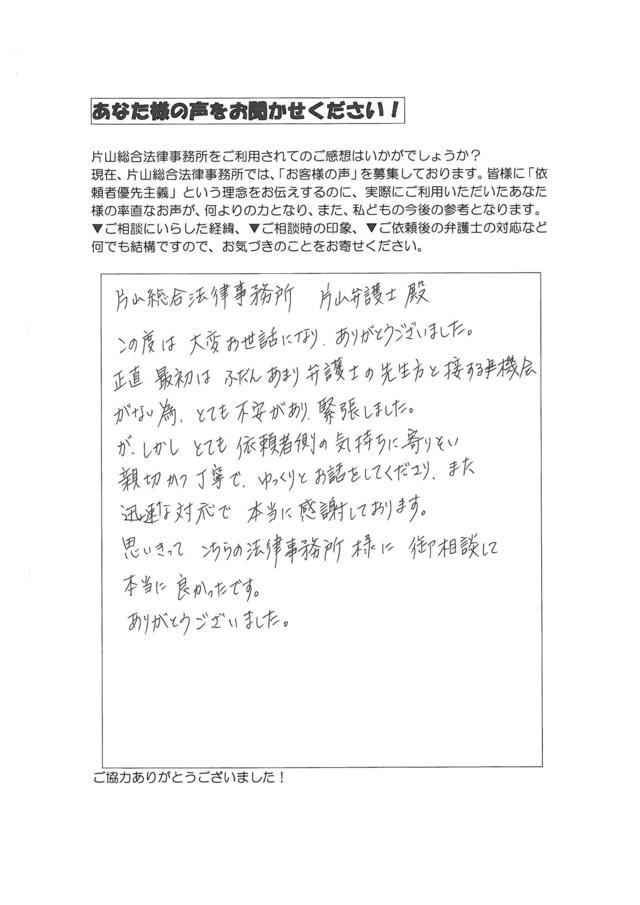 あなた様の声をお聞かせください！
片山総合法律事務所をご利用されてのご感想はいかがでしょうか？
現在、片山総合法律事務所では、「お客様の声」を募集しております。皆様に「依
頼者優先主義」という理念をお伝えするのに、実際にご利用いただいたあなた
様の率直なお声が、何よりの力となり、また、私どもの今後の参考となります。
▼ご相談にいらした経緯、▼ご相談時の印象、▼ご依頼後の弁護士の対応など
何でも結構ですので、お気づきのことをお寄せください。
片山総合法律事務所　片山弁護士 殿
この度は 大変お世話になり、ありがとうございました。
正直 最初は ふだん あまり 弁護士の先生方と接する機会
がない為、とても不安があり、緊張しました。
が、しかし とても 依頼者側の気持ちに寄りそい
親切かつ丁寧で、ゆっくりとお話をしてくださり、また
迅速な対応で 本当に感謝しております。
思いきって こちらの法律事務所様に 御相談して
本当に良かったです。
ありがとうございました。
ご協力ありがとうございました！